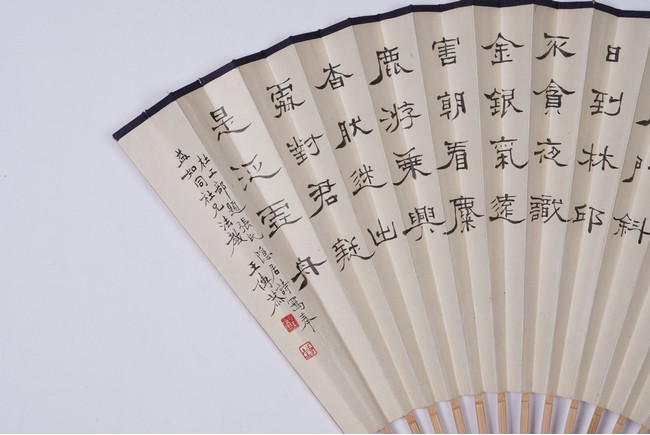 門斜
日到林邱
不貪夜識
金銀氣遠
害朝看麋
鹿游乘興
杳肰迷出
處對君疑
是泛虛舟
杜工部題張氏隱居詩寫奉
益如同社兄法教 王傳